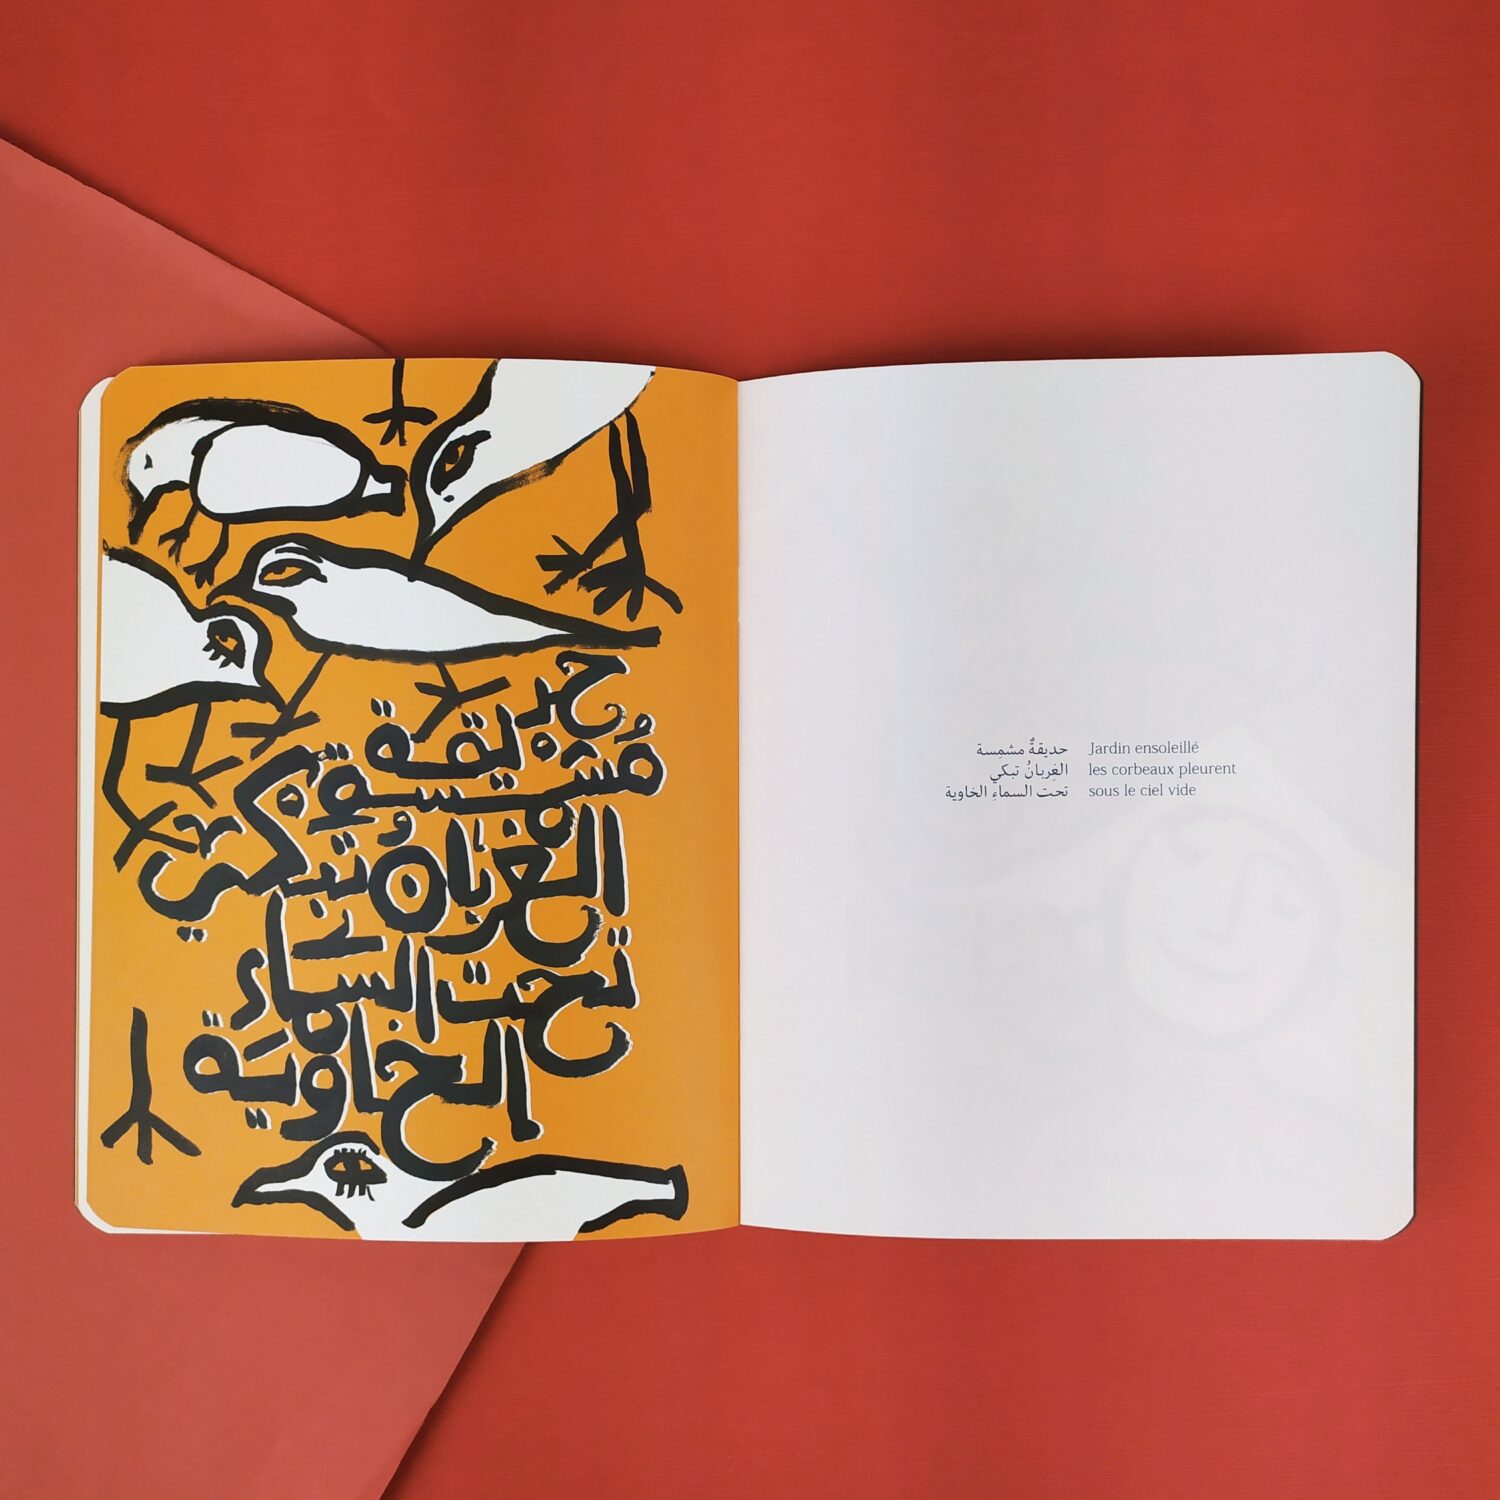 حديقة
مُشْمِسةٍ
الغربانُ تبكي
تحت السماءِ
الخاويَة
حديقةٌ مشمِسة
الغِربانُ تبكي
تحت السماءِ الخاوية
Jardin ensoleillé
les corbeaux pleurent
sous le ciel vide